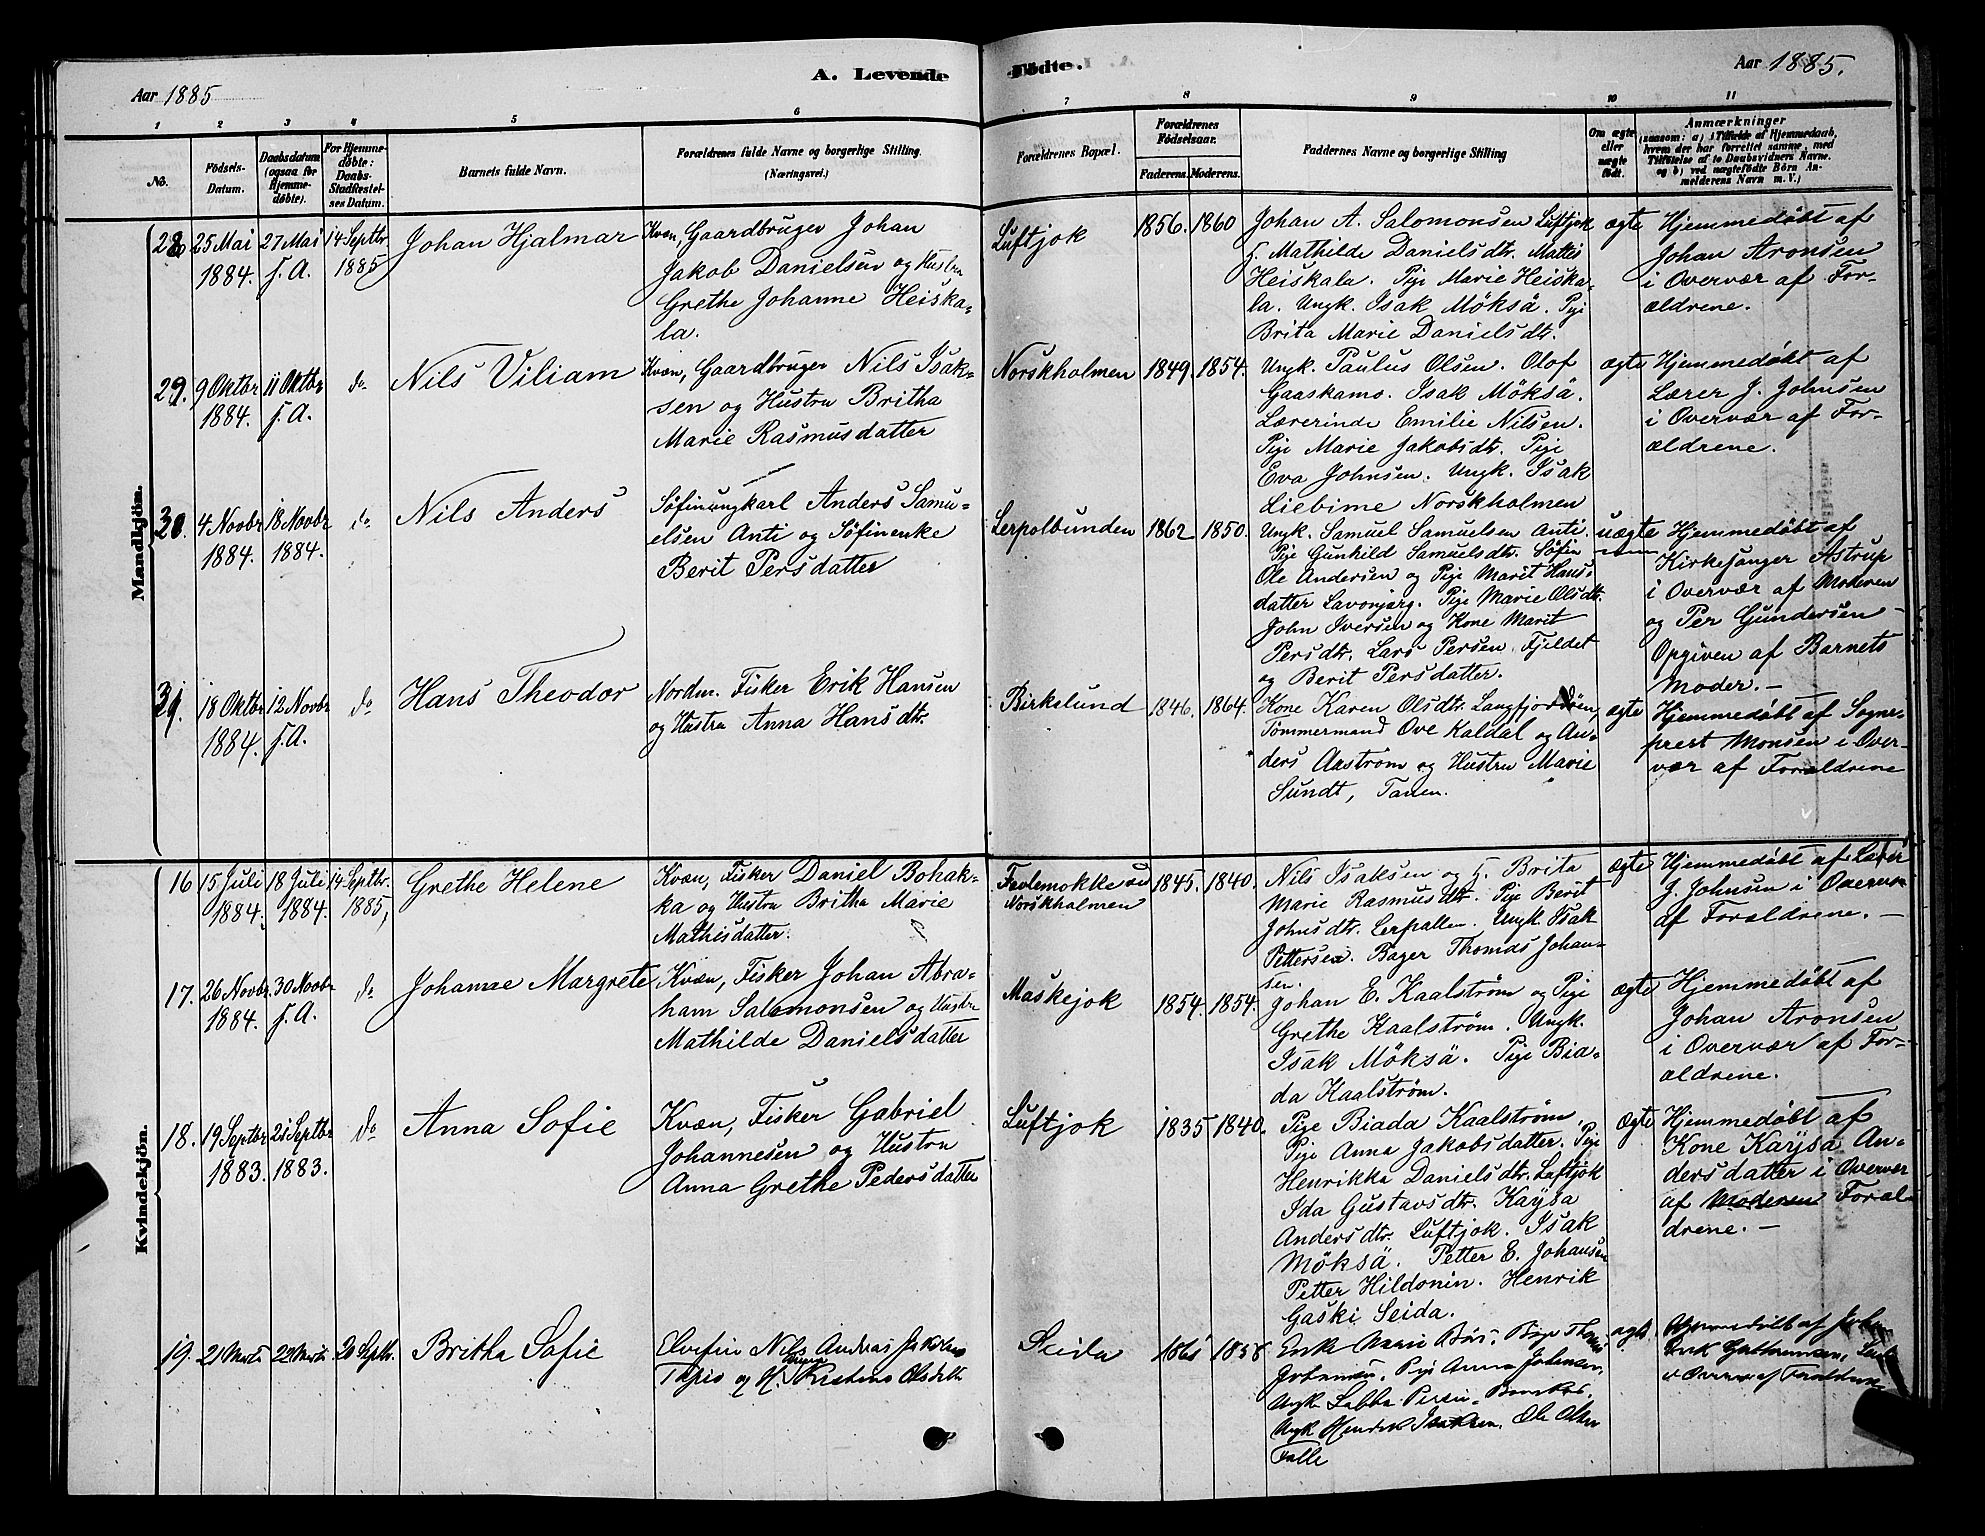 A. Levende
Födte.
Aar 1885
Aar 1885.
1 2 3 4 5 6 7 8 9 10 11
No.
Födsels-
Datum.
Daabsdatum
(ogsaa for
Hjemme-
döbte).
For Hjemme-
döbte:
Daabs-
Stadfæstel-
ses Datum.
Barnets fulde Navn.
Forældrenes fulde Navne og borgerlige Stilling.
(Næringsvei.)
Forældrenes Bopæl.
Forældrenes
Födselsaar.
Faderens.
Moderens.
Faddernes Navne og borgerlige Stilling
Om ægte
eller
uægte
födt.
Anmærkninger
(saasom: a) i Tilfælde af Hjemmedaab,
hvem der har forrettet samme, med
Tilföielse af to Daabsvidners Navne.
og b) ved uægtefödte Börn An-
melderens Navn m. V.)
Mandkjön.
28
25 Mai
1884.
27 Mai
s. A.
14 Septbr
1885
Johan Hjalmar
Kvæn, Gaardbruger Johan
Jakob Danielsen og Hustru
Grethe Johanne Heiska-
la.
Luftjok
1856.
1860
Johan A. Salomonsen Luftjok
H. Mathilde Danielsdtr. Mattis
Heiskala. Pige Marie Heiska-
la. Ungk. Isak Möksä. Pige
Brita Marie Danielsdtr.
ægte
Hjemmedøbt af
Johan Aronsen
i Overvær af For-
ældrene.
29.
9 Oktbr
1884.
11 Oktbr
s. A.
do
Nils Viliam
Kvæn, Gaardbruger Nils Isak-
sen og Hustru Britha
Marie Rasmusdatter
Norskholmen
1849.
1854.
Ungk. Paulus Olsen. Olof
Gaaskamo. Isak Möksä.
Lærerinde Emilie Nilsen.
Pige Marie Jakobsdtr. Pige
Eva Johnsen. Ungk. Isak
Liebime Norskholmen
ægte
Hjemmedøbt af
Lærer J. Johnsen
i Overvær af For-
ældrene.
30.
4 Novbr
1884.
18 Novbr
1884.
do
Nils Anders
Søfinungkarl Anders Samu-
elsen Anti og Søfinenke
Berit Persdatter
Lerpolbunden
1862
1850.
Ungk. Samuel Samuelsen Anti.
Pige Gunhild Samuelsdtr. Søfin
Ole Andersen og Pige Marit Hans-
datter Lavonjarg. Pige Marie Olsdtr.
John Iversen og Kone Marit
Persdtr. Lars Persen Fjeldet
og Berit Persdatter.
uægte
Hjemmedøbt af
Kirkesanger Astrup
i Overvær af Moderen
og Per Gundersen
Opgiven af Barnets
Moder.—
31.
18 Oktbr
1884.
12 Novbr
s. A.
do
Hans Theodor
Nordm. Fisker Erik Hansen
og Hustru Anna Hansdtr.
Birkelund
1846.
1864.
Kone Karen Olsdtr. Langfjordøen,
Tømmermand Ove Kaldal og An-
ders Aastrøm og Hustru Marie
Sundt, Tanen.
ægte
Hjemmedøbt af Sogne-
prest Monsen i Over-
vær af Forældrene
Kvindekjön.
16
15 Juli
1884.
18 Juli
1884.
14 Septbr.
1885,
Grethe Helene
Kvæn, Fisker Daniel Bohak-
ka og Hustru Britha Marie
Mathisdatter.
Norskholmen
1845.
1840.
Nils Isaksen og H. Brita
Marie Rasmusdtr. Pige Berit
Johnsdtr. Lerpollen. Ungk. Isak
Pettersen. Bager Thomas Johan-
sen.
ægte
Hjemmedøbt af Lærer
J. Johnsen i Overvær
af Forældrene. —
17.
26 Novbr.
1884.
30 Novbr
s. A.
do
Johanne Margrete
Kvæn, Fisker Johan Abra-
ham Salomonsen og Hustru
Mathilde Danielsdatter
Maskejok
1854.
1854.
Johan E. Kaalstrøm og Pige
Grethe Kaalstrøm. Ungk.
Isak Möksä. Pige Bia-
da Kaalstrøm.
ægte
Hjemmedøbt af
Johan Aronsen
i Overvær af For-
ældrene.
18.
19 Septbr
1883.
21 Septbr
1883.
do
Anna Sofie
Kvæn, Fisker Gabriel
Johannesen og Hustru
Anna Grethe Pedersdatter
Luftjok
1835
1840.
Pige Biada Kaalstrøm
Pige Anna Jakobsdatter. Pige
Henrikka Danielsdtr. Luftjok
Ida Gustavsdtr. Kaysa
Andersdtr. Luftjok. Isak
Möksä. Petter E. Johansen
Petter Hildonin. Henrik
Gaski Seida.
ægte
Hjemmedøbt af
Kone Kaysa An-
dersdatter i Overvær
af Moderen Foræl-
drene. —
19.
21 Marts
22 Marts
20 Septbr.
Britha Sofie
Elvefin Nils Andreas
og H. Kirstine Olsdtr
Seida
1858
Pige Anna Johnsen,
Ungk Henrik Isaksen. Ole Olsen
ægte
Hjemmedøbt af
i Overvær af Forældrene